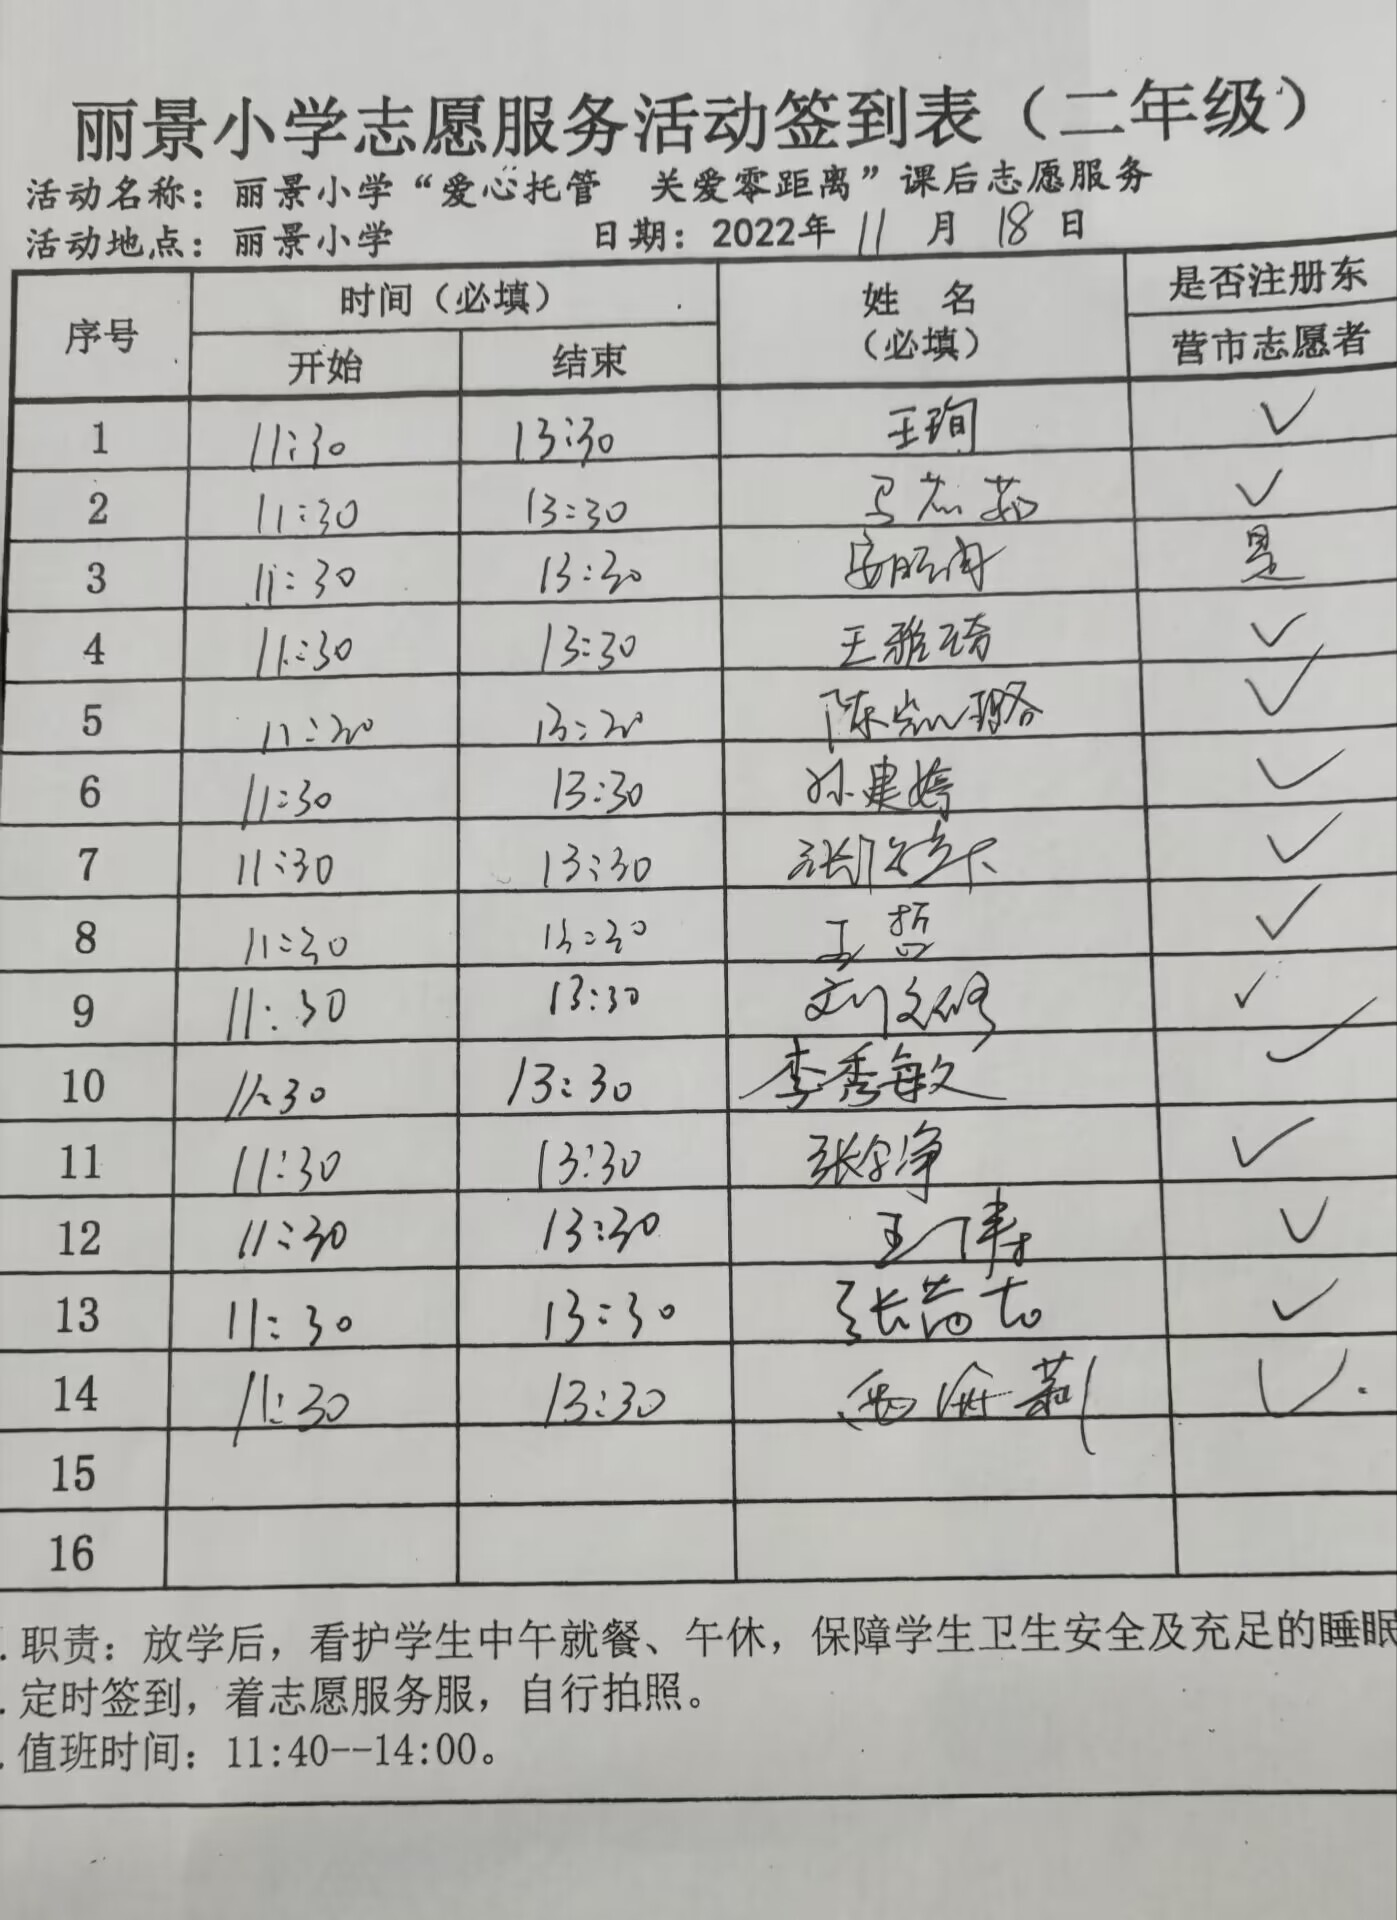 丽景小学志愿服务活动签到表（二年级）
活动名称：丽景小学“爱心托管 关爱零距离”课后志愿服务
活动地点：丽景小学 日期：2022年 11 月 18 日
序号 时间（必填） 姓 名 是否注册东
开始 结束 （必填） 营市志愿者
1 11:30 13:30 王珣 ✓
2 11:30 13:30 马志茹 ✓
3 11:30 13:30 是
4 11:30 13:30 王雅琦 ✓
5 11:30 13:30 陈凯璐 ✓
6 11:30 13:30 孙建婷 ✓
7 11:30 13:30 ✓
8 11:30 13:30 王哲 ✓
9 11:30 13:30 刘文修 ✓
10 11:30 13:30 李秀敏 ✓
11 11:30 13:30 ✓
12 11:30 13:30 王伟 ✓
13 11:30 13:30 ✓
14 11:30 13:30 ✓
15
16
. 职责：放学后，看护学生中午就餐、午休，保障学生卫生安全及充足的睡眠
. 定时签到，着志愿服务服，自行拍照。
. 值班时间：11:40--14:00。